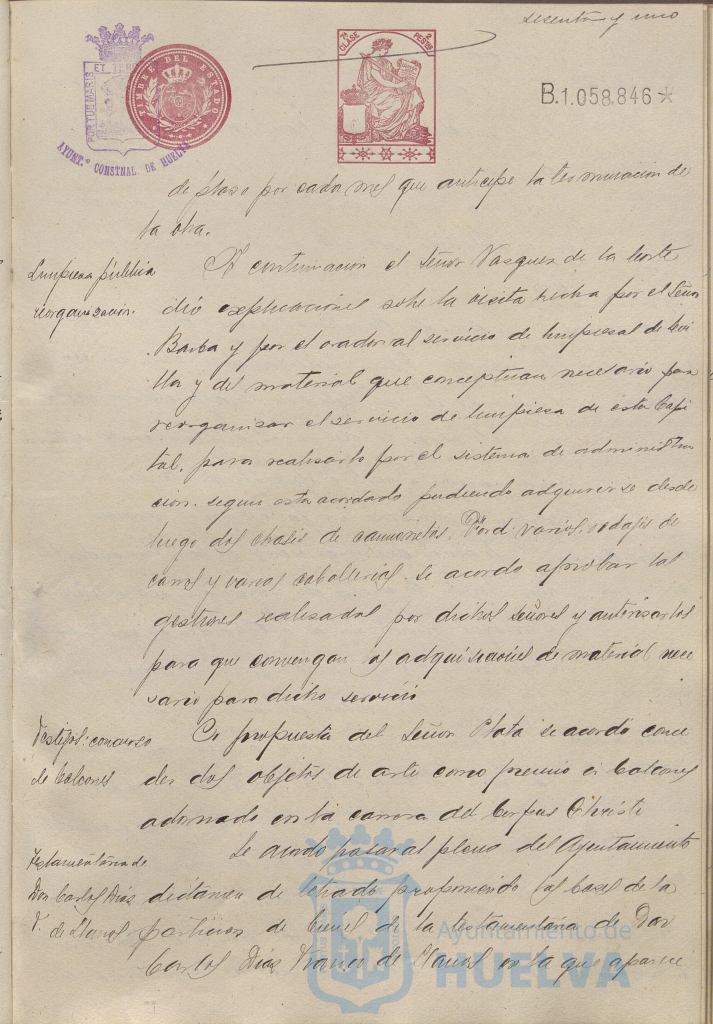 sesenta y uno
7ª CLASE
2 PESETAS
TIMBRE DEL ESTADO
PORTUS MARIS ET TERRE
AYUNTº CONSTNAL. DE HUELVA
B.1.058.846 *
de plazo por cada mes que anticipe la terminacion de
la obra.
Limpieza pública
reorganisacion.
A continuacion el Señor Vasquez de la Corte
dió explicaciones sobre la visita hecha por el Señor
Barba y por el orador al servicio de limpiezas de Sevi
lla y de material que conceptuan necesario para
reorganisar el servicio de limpiesa de esta Capi
tal, para realisarlo por el sistema de administra
cion segun esta acordado pudiendo adquirirse desde
luego dos chasis de camionetas Ford. varios rodajes de
carros y varias caballerias se acordo aprobar las
gestiones realisadas por dichos señores y autorisarlos
para que convengan las adquisiciones de material nece
sario para dicho servicio
Festejos: concurso
de balcones
A propuesta del Señor Plata se acordó conce
der dos objetos de arte como premio a balcones
adornado en la carrera del Corpus Christi
Testamentaria de
Don Carlos Dias
F. de Llanos
Se acordo pasar al pleno del Ayuntamiento
dictamen de letrado proponiendo las bases de la
particion de bienes de la testamentaria de Don
Carlos Dias Franco de Llanos en la que aparece
Ayuntamiento de
HUELVA